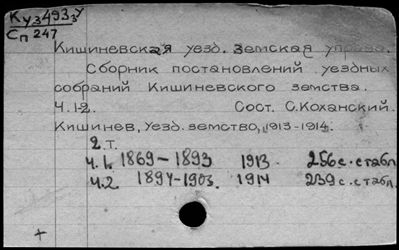 Ку 3493у
Сп 247
Кишиневская уезд. Земская управа.
Сборник постановлений уездных
собраний Кишиневского земства.
Ч.1-2. Сост. С.Коханский.
Кишинев, Уезд. земство, 1913-1914.
2 т.
Ч.1. 1869-1893 1913 256 с. с табл.
Ч.2. 1894-1903. 1914 239 с. с табл.